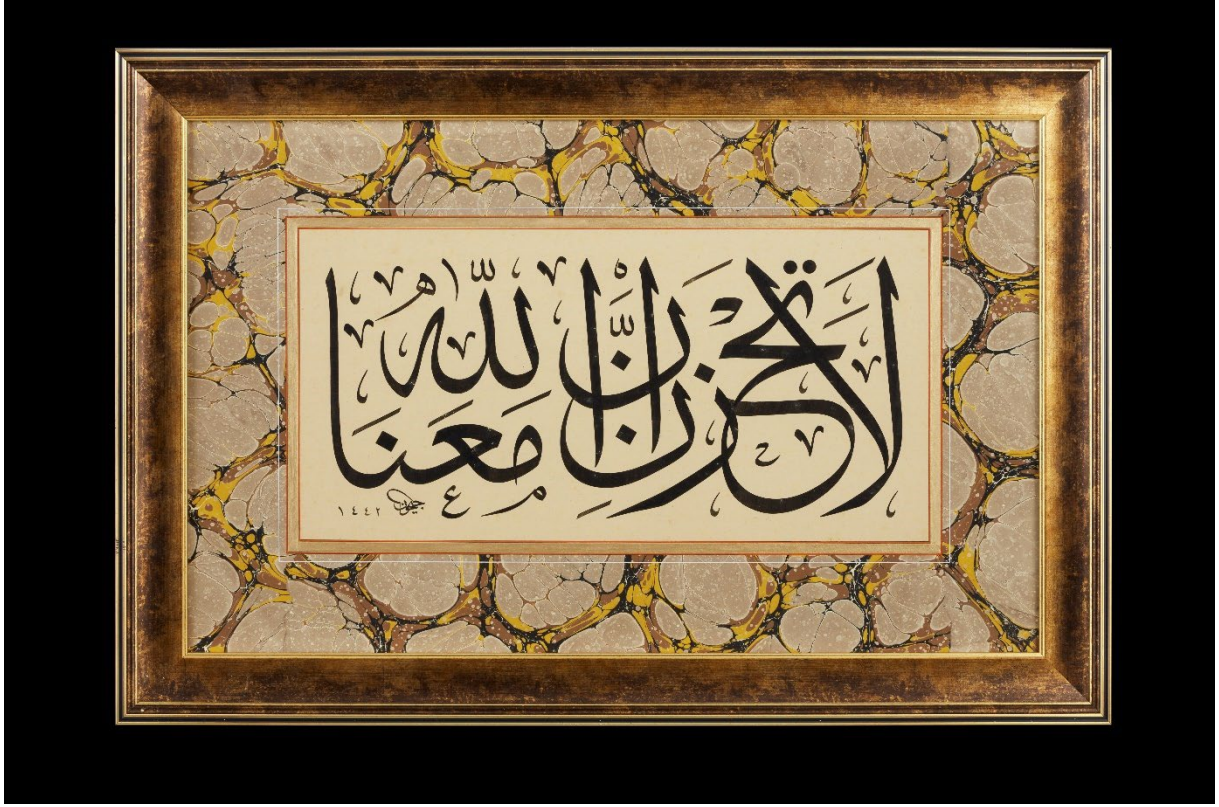 لَا تَحْزَنْ إِنَّ اللّٰهَ مَعَنَا
١٤٤٢